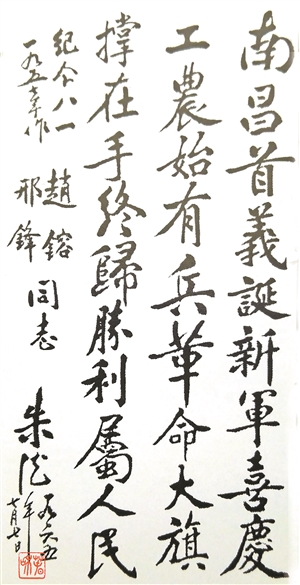 南昌首義誕新軍喜慶
工農始有兵革命大旗
撑在手終歸勝利屬人民
紀念八一
一九五七年作
趙鎔
邢鋒
同志
朱德
一九六五年
七月七日